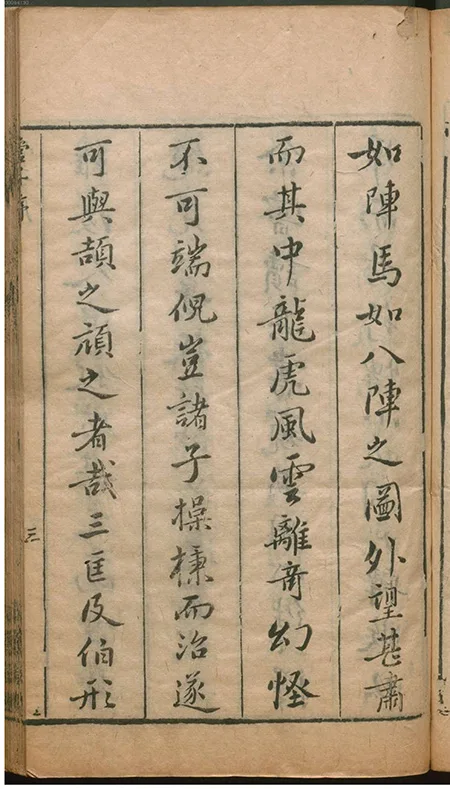 如陣馬如八陣之圖外望甚肅
而其中龍虎風雲離奇幻怪
不可端倪豈諸子操槧而治遂
可與頡之頏之者哉三匡及伯形
三